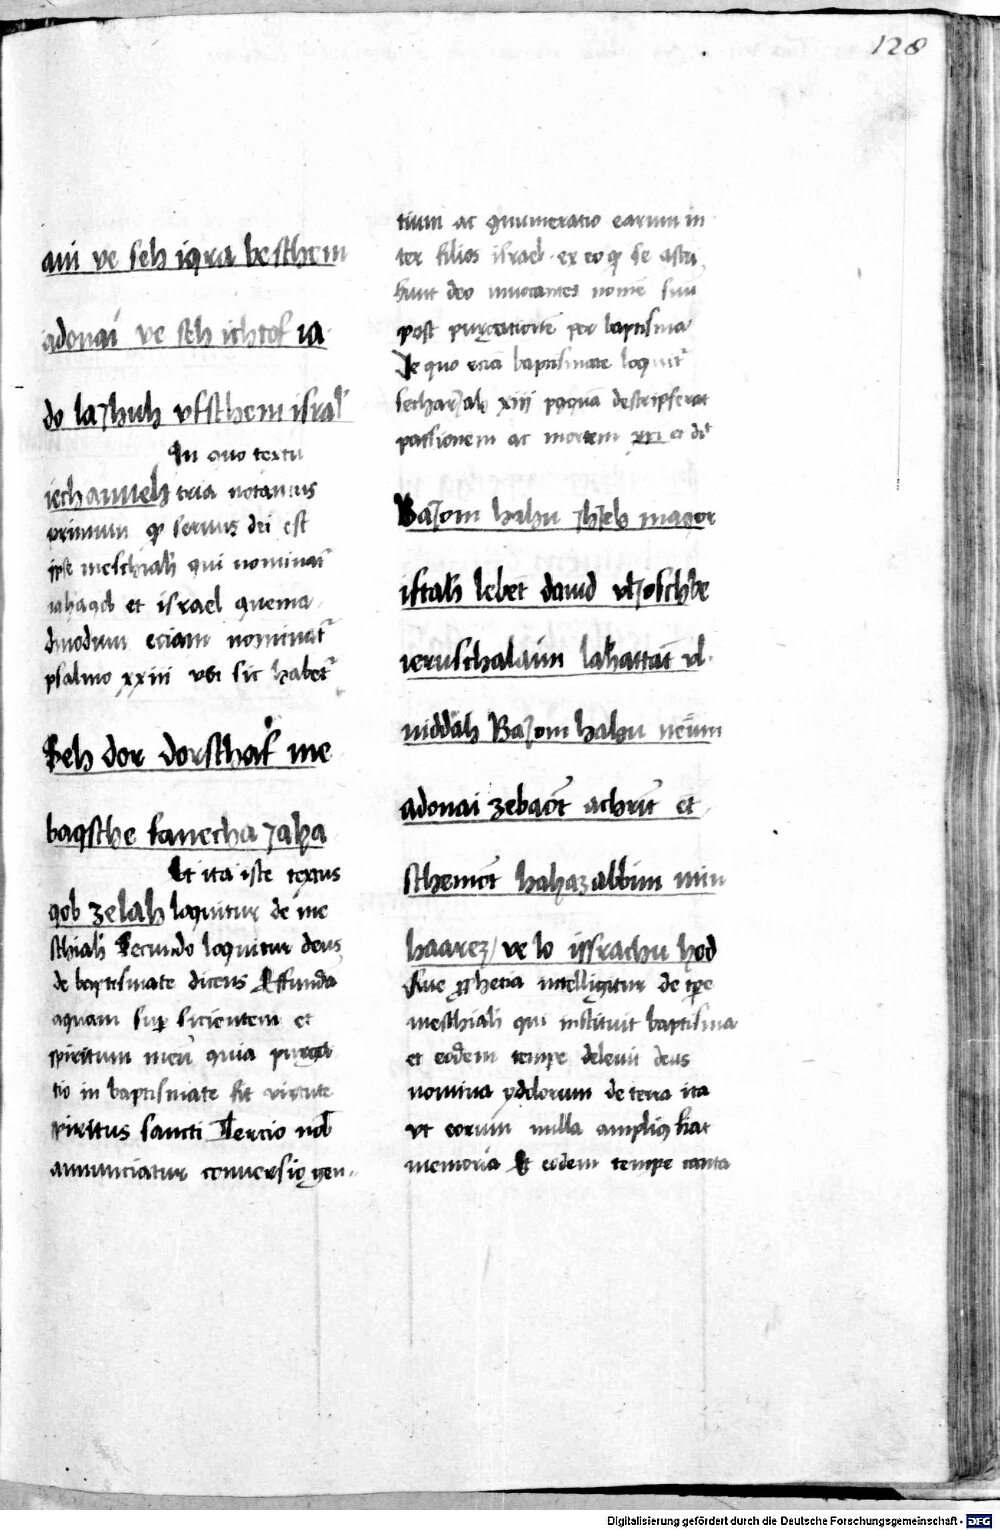 128
ani ve seh iqra besthem
adonai ve seh ichtof ia
do la7huh ufsthem israł
In quo textu
iechannueh tria notamus
primum qͥ seruus dei est
ipse meschiah qui nominat̉
iahaqob et israel quema
dmodum eciam nominat̉
psalmo xxiii vbi sic habet̉
Seh dor dorschaf me
baqsthe fanecha 7aha
Et ita iste textus
qob zelah loquitur de me
schiah Secundo loquitur deus
de baptismate dicens Effunda
aquam sup̱ sicientem et
spiritum meū quia purga
tio in baptismate fit virtute
spiritus sancti Tercio nob̃
annunciatur conuersio gen
tium ac gnumeratio earum in
ter filios israel ex eo qͥ se astri
hunt deo inuocantes nomē suū
post purgationē per baptisma
De quo eciā baptismate loquit̉
sechar7ah xiii postquā descripserat
passionem ac mortem xpi et dit̉
Ba7om hahu 7h7eh maqor
iftah lebet dauid ul7osch̉be
ieruschalaim lahattāt ul
niddah Ba7om hahu neūm
adonai zebaōt achrīt et
sthemōt hahazabbim min
haarez / ve lo issrachu hod
Que ꝓphetia intelligitur de tp̱e
meschiah qui instituit baptisma
et eodem tempe deleuit deus
nomina ydolorum de terra ita
vt eorum nulla ampliꝰ fiat
memoria Et eodem tempe tanta
Digitalisierung gefördert durch die Deutsche Forschungsgemeinschaft - DFG